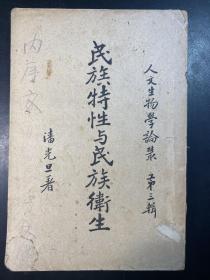 人文生物學論叢 第三輯
民族特性与民族衛生
潘光旦著